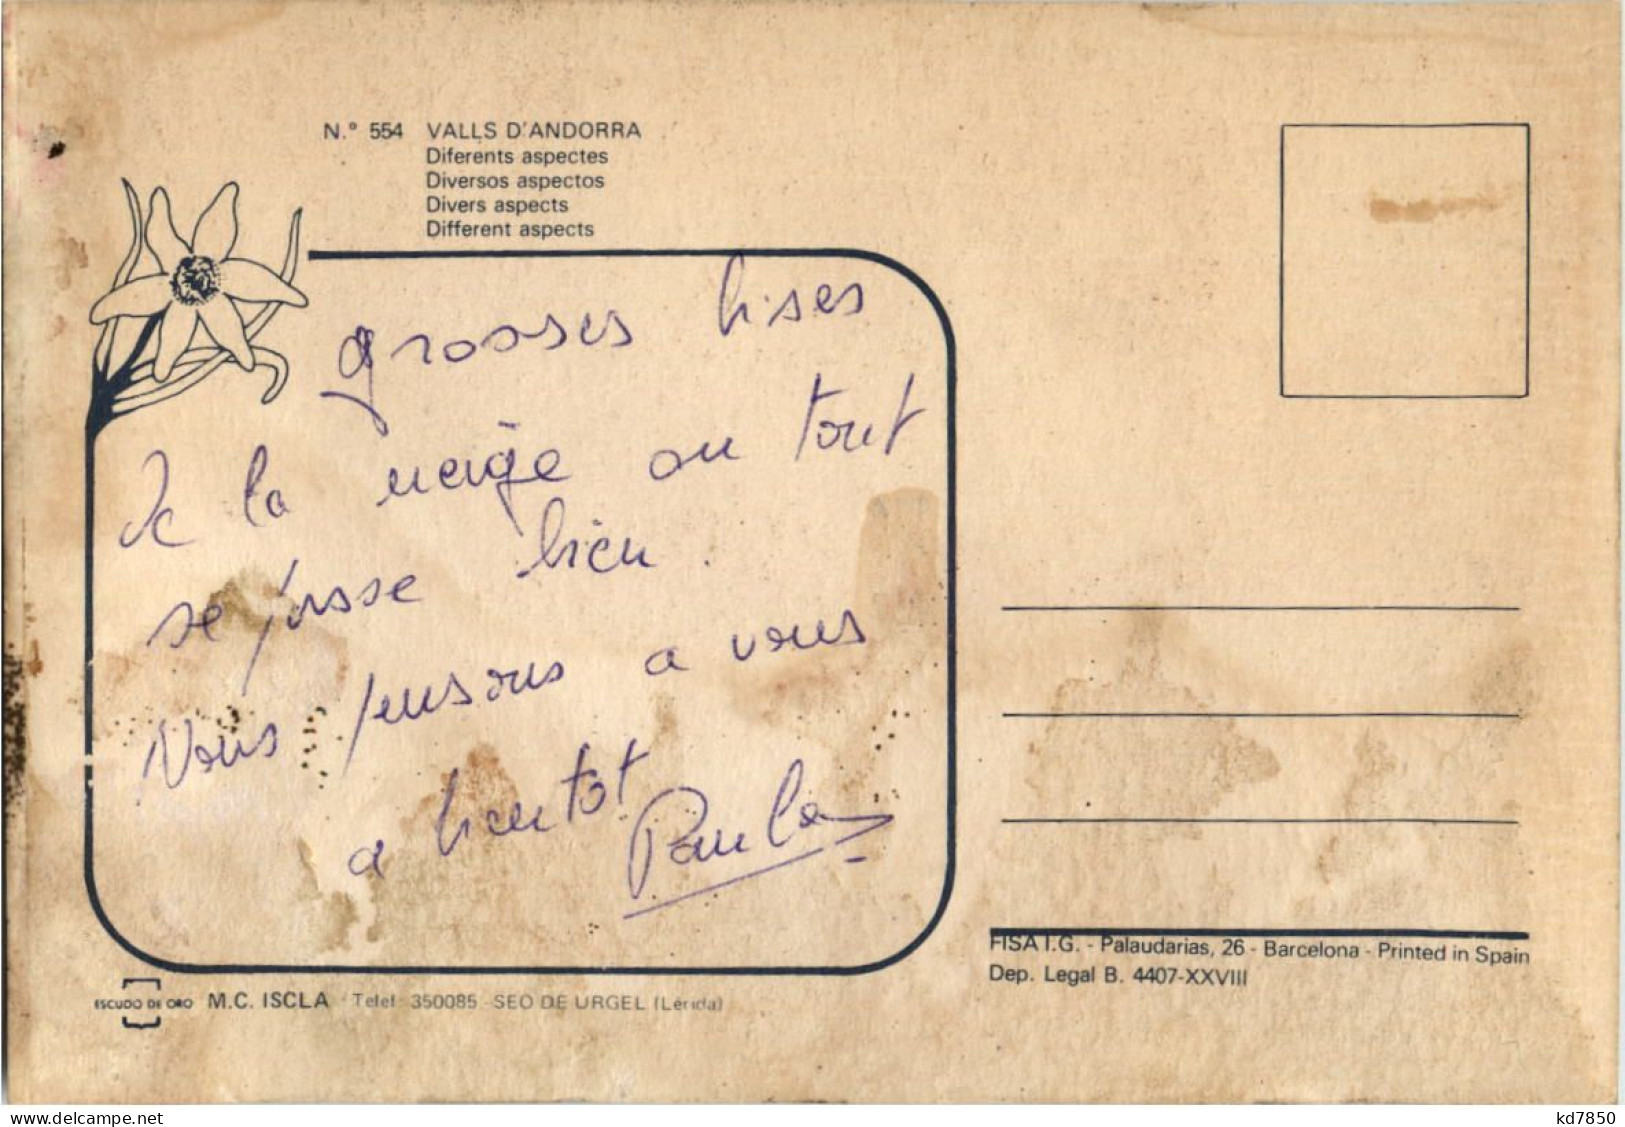 N.º 554 VALLS D'ANDORRA
Diferents aspectes
Diversos aspectos
Divers aspects
Different aspects
grosses bises
de la neige ou tout
se passe bien.
Nous pensons a vous
a bientot
Paula
FISA I.G. - Palaudarias, 26 - Barcelona - Printed in Spain
Dep. Legal B. 4407-XXVIII
ESCUDO DE ORO M.C. ISCLA Telef 350085 SEO DE URGEL (Lérida)
delcampe.net
kd7850